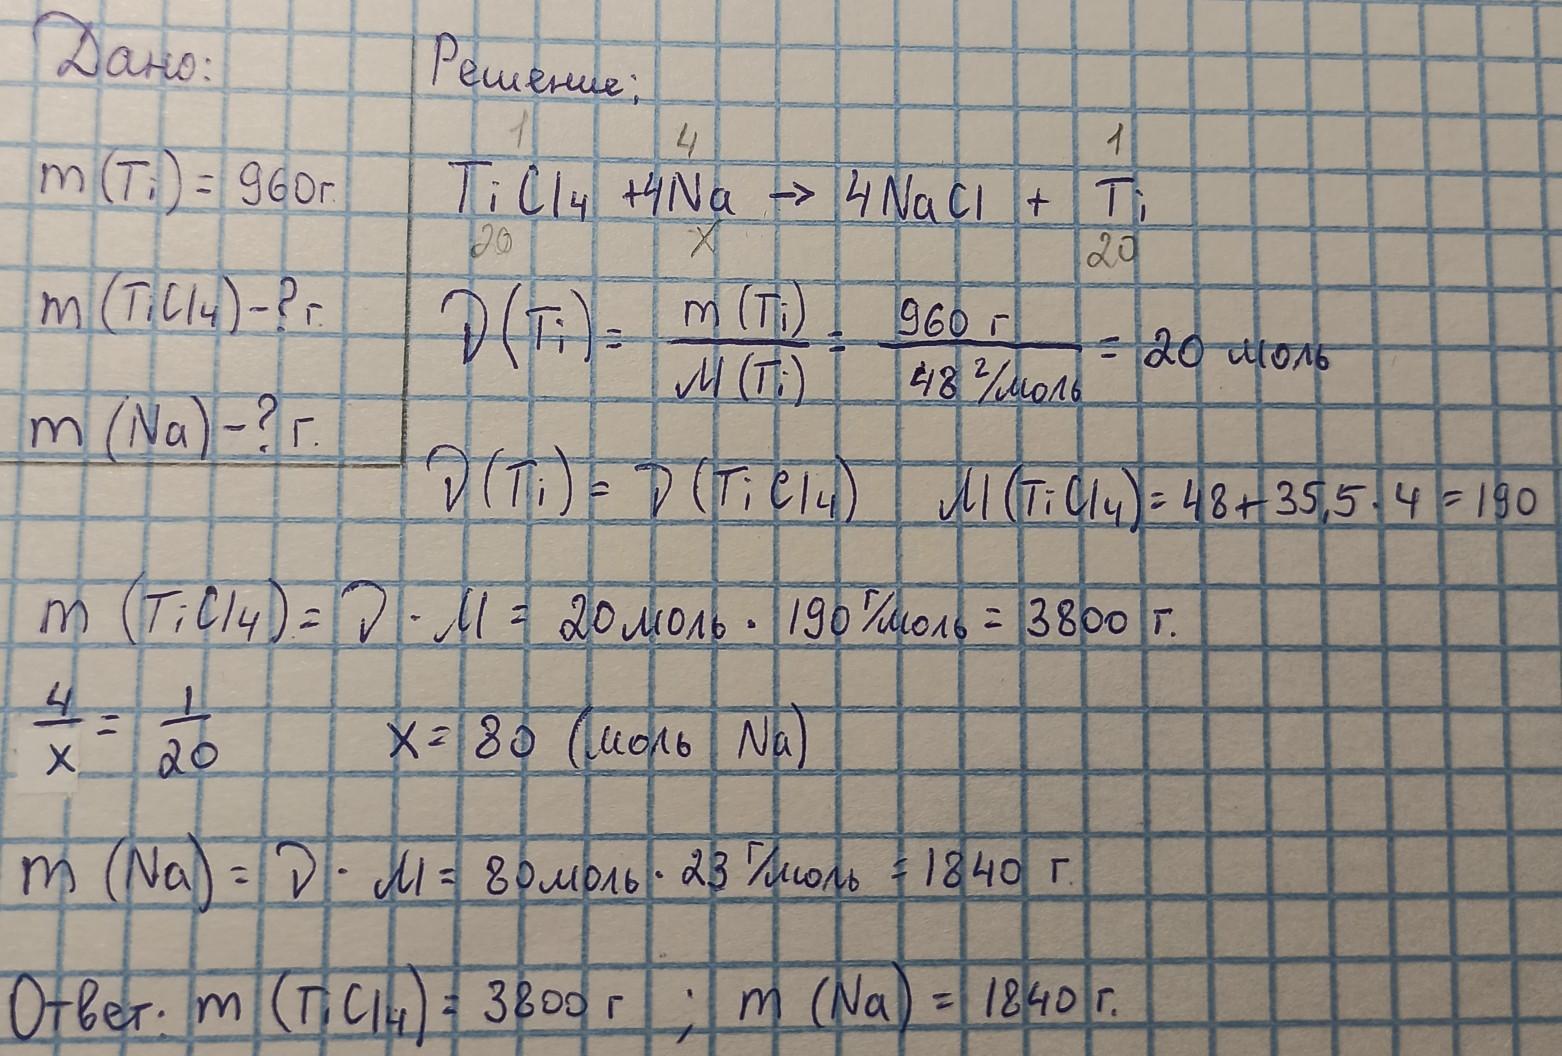 Дано:
m (Ti) = 960г.
m (TiCl4) - ? г.
m (Na) - ? г.
Решение;
1 4 1
TiCl4 + 4Na → 4NaCl + Ti
20 x 20
D (Ti) = m (Ti) / M (Ti) = 960 г / 48 г/моль = 20 моль
D (Ti) = D (TiCl4) M (TiCl4) = 48 + 35,5 · 4 = 190
m (TiCl4) = D · M = 20 моль · 190 г/моль = 3800 г.
4/x = 1/20 x = 80 (моль Na)
m (Na) = D · M = 80 моль · 23 г/моль = 1840 г.
Ответ: m (TiCl4) = 3800 г ; m (Na) = 1840 г.